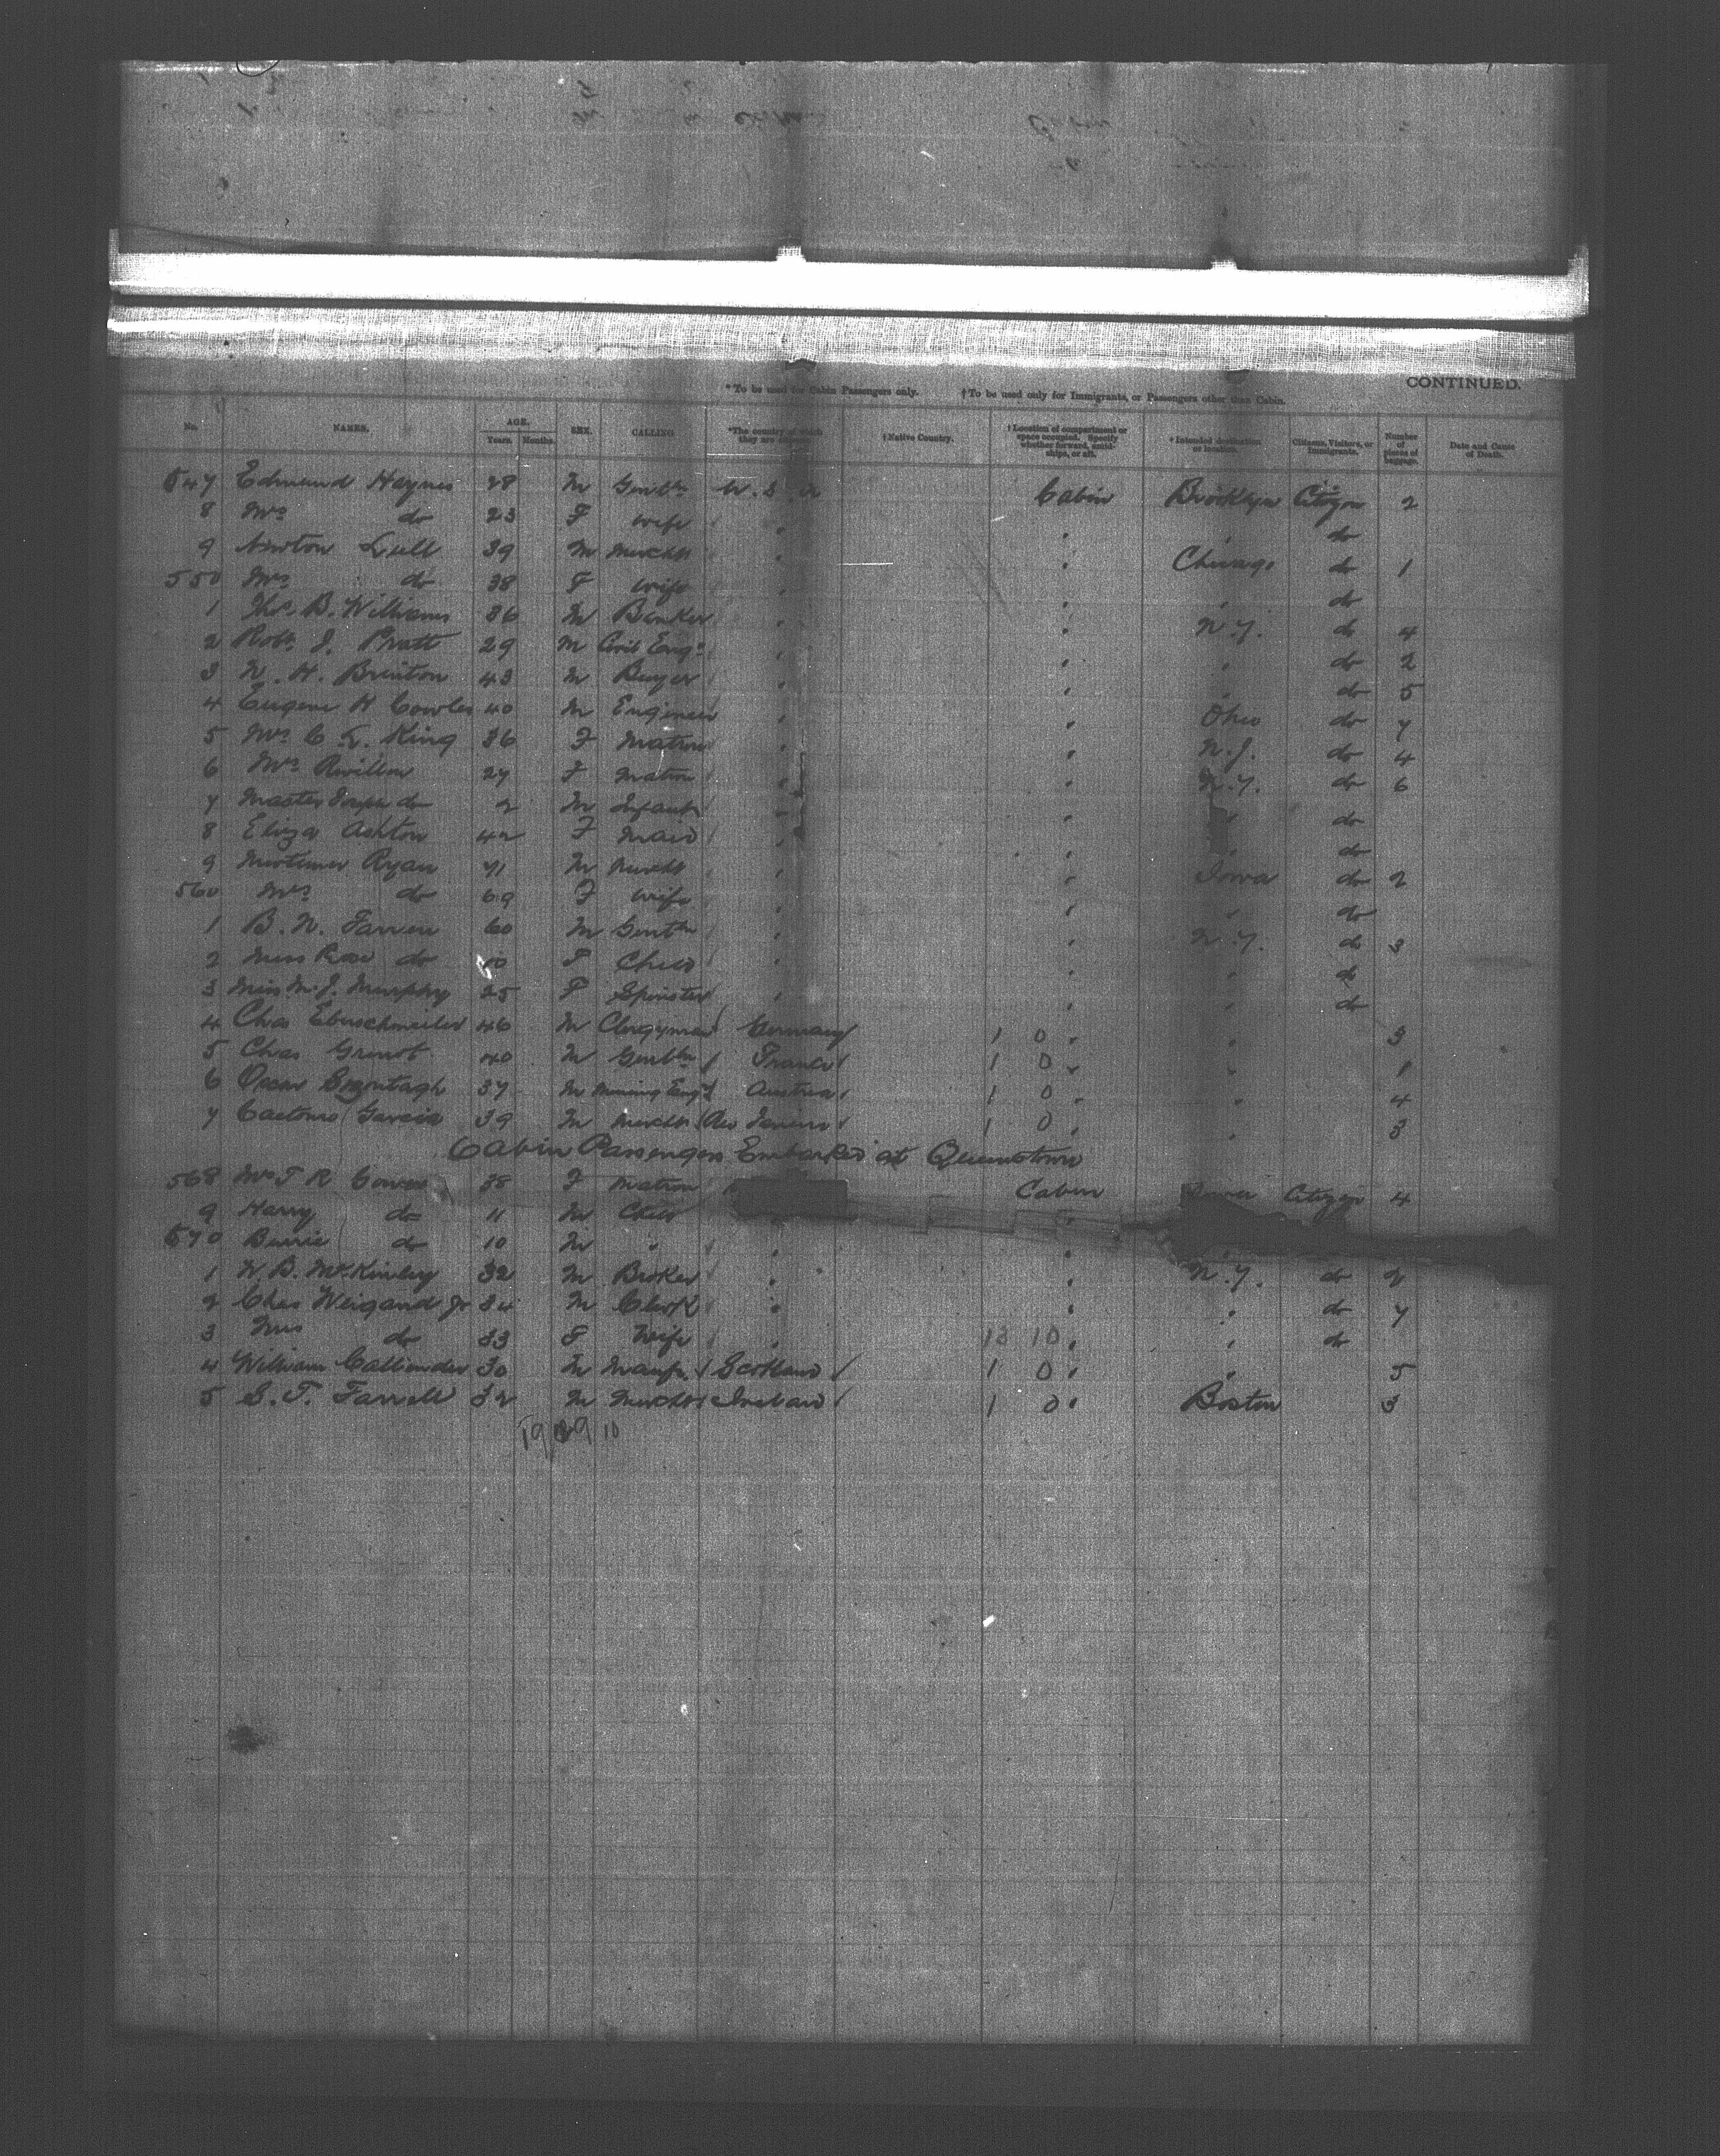 CONTINUED.
* To be used for Cabin Passengers only. † To be used only for Immigrants, or Passengers other than Cabin.
No. NAMES. AGE. Years. Months. SEX. CALLING *The country of which they are citizens. † Native Country. † Location of compartment or space occupied. Specify whether forward, amidships, or aft. * Intended destination or location. Citizens, Visitors, or Immigrants. Number of pieces of luggage. Date and Cause of Death.
547 Edmund Haynes 28 M Gentln U.S.A Cabin Brooklyn Citizen 2
8 Mrs do 23 F wife " " " do
9 Newton Lull 39 M Mercht " " Chicago do 1
550 Mrs do 38 F wife " " " do
1 Thos. B. Williams 36 M Banker " " N.Y. do 4
2 Robt. J. Pratt 29 M Civil Engr " " " do 2
3 N. H. Brinton 43 M Buyer " " " do 5
4 Eugene H Cowles 40 M Engineer " " Ohio do 7
5 Mrs C. L. King 36 F Matron " " N.J. do 4
6 Mrs 27 F Matron " " N.Y. do 6
7 Master Joseph do 2 M Infant " " " do
8 Eliza Ashton 42 F Maid " " " do
9 Mortimer Ryan 71 M Mercht " " Iowa do 2
560 Mrs do 69 F wife " " " do
1 B. N. Farren 60 M Gentln " " N.Y. do 3
2 Miss Rose do 10 F Child " " " do
3 Miss M. J. Murphy 25 F Spinster " " " do
4 Chas Eberschweiler 46 M Clergyman Germany 1 0 " " 3
5 Chas 40 M Gentln France 1 0 " " 1
6 Oscar 37 M Mining Engr Austria 1 0 " " 4
7 Garcia 39 M Mercht 1 0 " " 3
Cabin Passengers Embarked at Queenstown
568 Mrs T R 38 F Matron Cabin Citizen 4
9 Harry do 11 M Child "
570 do 10 M " " " "
1 W. B. McKinley 32 M Broker " " N.Y. do 2
2 Chas Weigand Jr 34 M Clerk " " " do 7
3 Mrs do 33 F Wife " 13 10 " " do
4 William Callender 30 M Manfr Scotland 1 0 " " 5
5 S. T. Farrell 32 M Mercht Ireland 1 0 " Boston 3